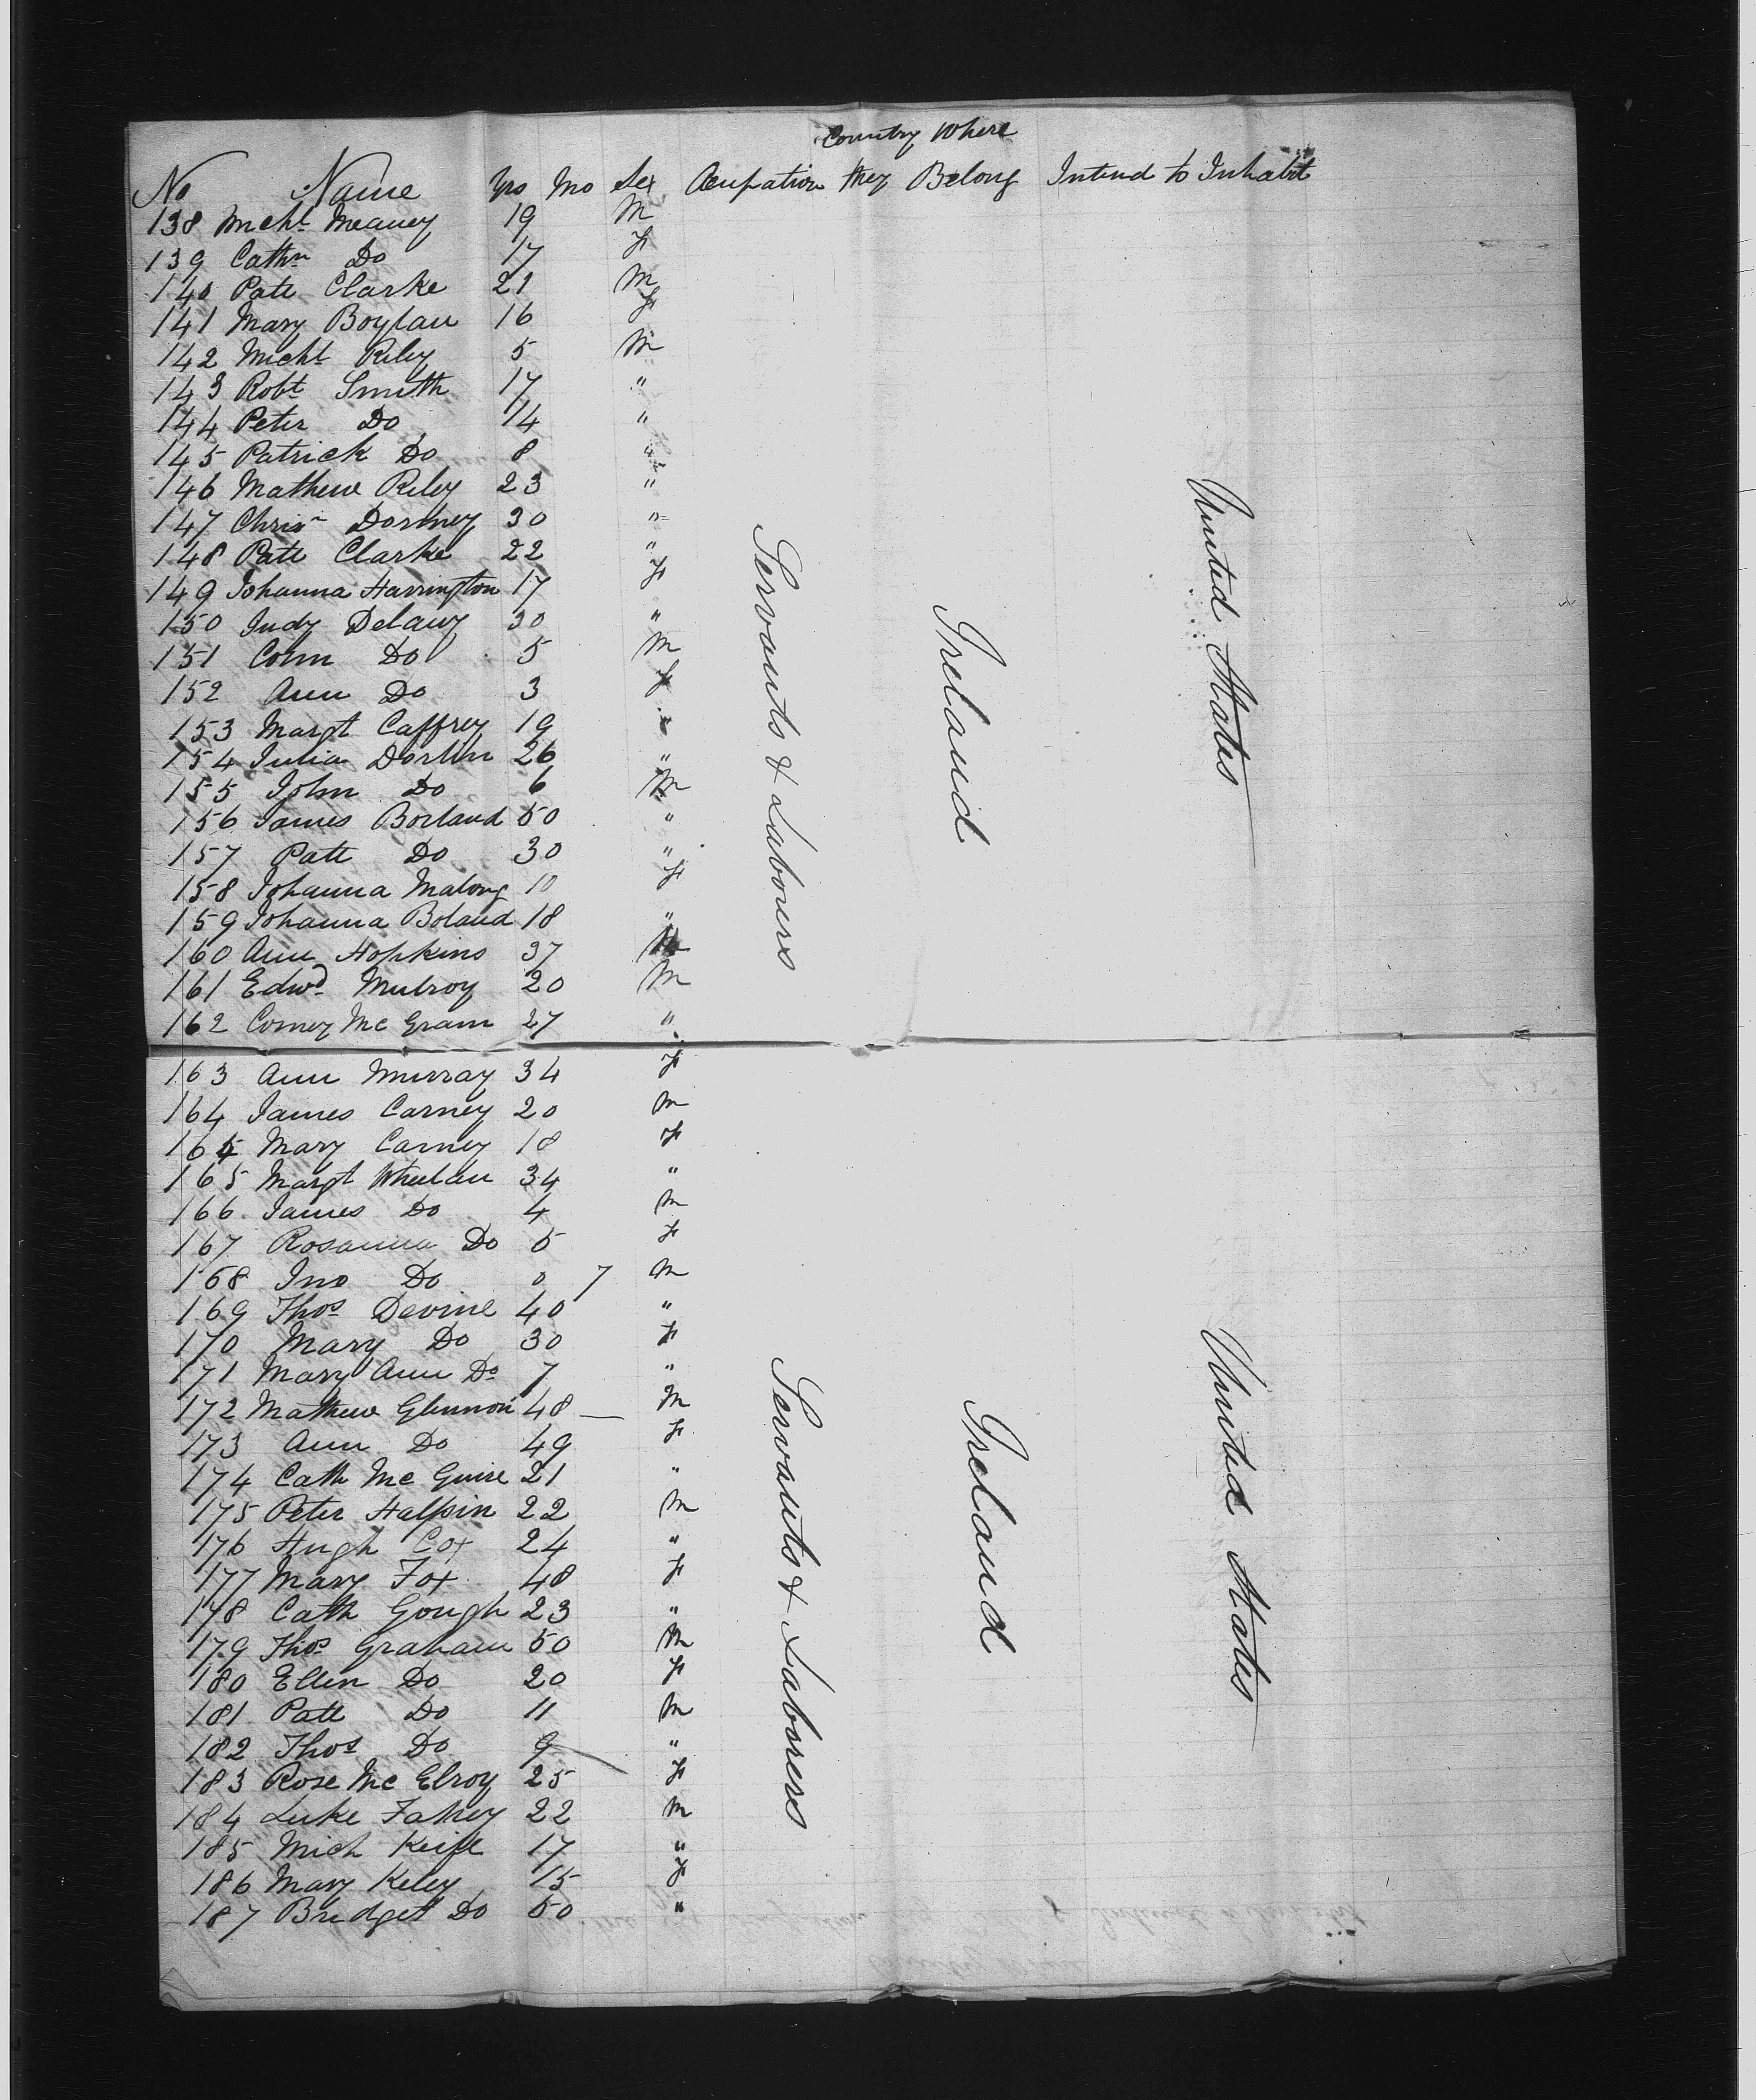 Country Where
No Name Yrs Mo Sex Ocupation they Belong Intend to Inhabit
138 Michl Meaney 19 M
139 Cathn Do 17 F
140 Patt Clarke 21 M
141 Mary Boylan 16 F
142 Michl Riley 5 M
143 Robt Smith 17 "
144 Peter Do 14 "
145 Patrick Do 8 "
146 Mathew Riley 23 "
147 Chrisr 30 "
148 Patt Clarke 22 "
149 Johanna Harrington 17 F
150 Judy Delany 30 "
151 Do 5 M
152 Ann Do 3 F
153 Margt Caffrey 19 "
154 Julia 26 "
155 John Do 6 M
156 James Borland 50 "
157 Patt Do 30 "
158 Johanna Malony 10 F
159 Johanna Boland 18 "
160 Ann Hopkins 37
161 Edwd Mulroy 20 M
162 Corney Mc Gram 27 "
163 Ann Murray 34 F
164 James Carney 20 M
164 Mary Carney 18 F
165 Margt Wheelan 34 "
166 James Do 4 M
167 Rosanna Do 5 F
168 Jno Do 0 7 M
169 Thos Devine 40 "
170 Mary Do 30 F
171 Mary Ann Do 7 "
172 Mathew Glennon 48 — M
173 Ann Do 49 F
174 Cath Mc Guire 21 "
175 Peter Halpin 22 M
176 Hugh Cox 24 "
177 Mary Fox 48 F
178 Cath Gough 23 "
179 Thos Graham 50 M
180 Ellen Do 20 F
181 Patt Do 11 M
182 Thos Do 9 "
183 Rose Mc Elroy 25 F
184 Luke Fahey 22 M
185 Mich Keife 17 "
186 Mary Keley 15 F
187 Bridget Do 50 "
Servants & Laborers
Ireland
United States
Servants & Laborers
Ireland
United States